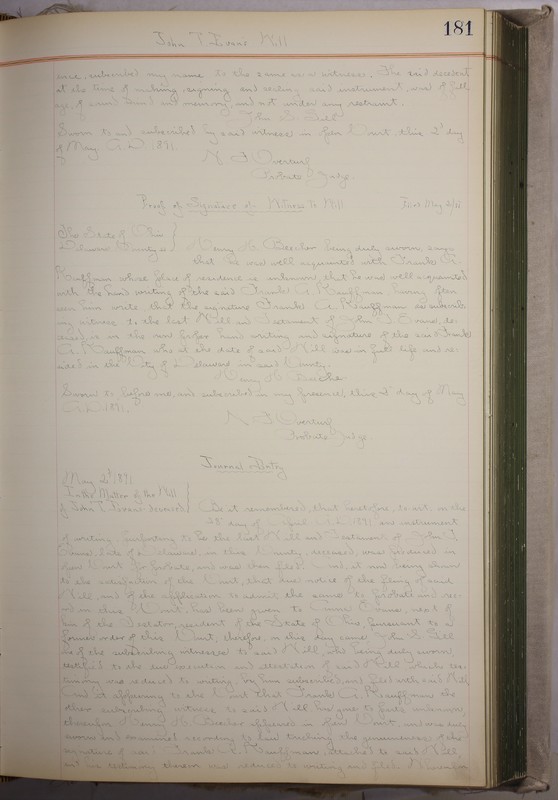 181
John T. Evans Will
ence, subscribed my name to the same as a witness. The said decedent
at the time of making, signing and sealing said instrument, was of full
age, of sound mind and memory and not under any restraint.
John S. Gill
Sworn to and subscribed by said witness in open Court, this 2d day
of May A.D. 1891.
N. F. Overturf
Probate Judge.
Proof of Signature of Witness to Will
Filed May 2/91
The State of Ohio
Delaware County ss
Henry H. Beecher being duly sworn, says
that he was well acquainted with Frank A.
Kauffman whose place of residence is unknown, that he was well acquainted
with the hand writing of the said Frank A. Kauffman having often
seen him write, that the signature Frank A. Kauffman as subscrib-
ing witness to the last Will and Testament of John T. Evans, de-
ceased, is in the own proper hand writing and signature of the said Frank
A. Kauffman who at the date of said Will was in full life and re-
sided in the City of Delaware in said County.
Henry H. Beecher
Sworn to before me, and subscribed in my presence, this 2d day of May
A.D. 1891.
N. F. Overturf
Probate Judge.
Journal Entry
May 2d 1891
In the Matter of the Will
of John T. Evans deceased
Be it remembered, that heretofore, to wit, on the
28 day of April A.D. 1891 an instrument
of writing purporting to be the last Will and Testament of John T.
Evans, late of Delaware, in this County, deceased, was produced in
open Court for probate, and was then filed. And, it now being shown
to the satisfaction of the Court, that due notice of the filing of said
Will, and of the application to admit the same to probate and rec-
ord in this Court, has been given to Evans, next of
kin of the Testator, resident of the State of Ohio, pursuant to a
former order of this Court, therefore, on this day came John S. Gill
one of the subscribing witnesses to said Will who being duly sworn,
testified to the due execution and attestation of said Will which tes-
timony was reduced to writing, by him subscribed, and filed with said Will,
And it appearing to the Court that Frank A. Kauffman the
other subscribing witness to said Will has gone to parts unknown,
therefore Henry H. Beecher appeared in open Court, and was duly
sworn and examined according to law touching the genuineness of the
signature of said Frank A. Kauffman, attached to said Will,
and his testimony thereon was reduced to writing and filed.